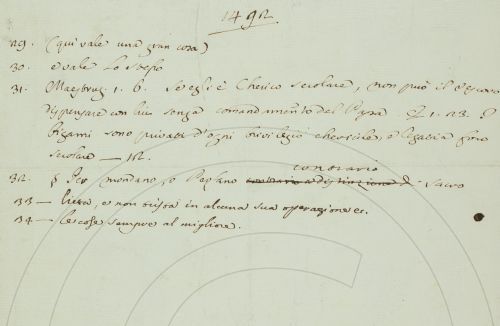 1492
29. (qui vale una gran cosa)
30. e vale lo stesso
31. Maesbrug. 1. 6. Se egli è Cherico secolare, non può il Vescovo
dispensare con lui senza comandamento del Papa. 1. 23.
bigami sono privati d'ogni privilegio chericile, e legasia foro
secolare — 12.
contrario
32. § Per mondano, o Paplano contrario a distinzione di sacro
33 — liera, e non ociosa in alcuna sua operazione ec.
34 — le cose sempre al migliore.